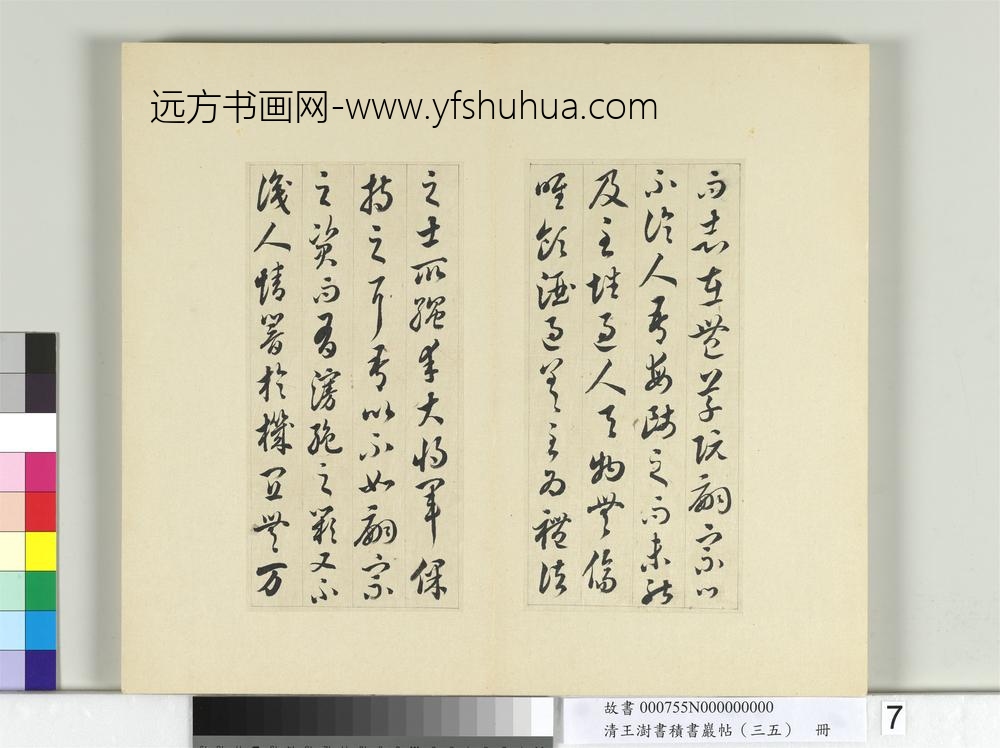 远方书画网-www.yfshuhua.com
而志在豐草阮嗣宗口
不論人吾每師之而未能
及至性過人與物無傷
唯飲酒過差至為禮法
之士所繩幸大將軍保
持之耳吾以不如嗣宗
之資而有慢弛之闕又不
識人情闇於機宜無万
故書 000755N000000000
清王澍書積書巖帖（三五） 冊
7